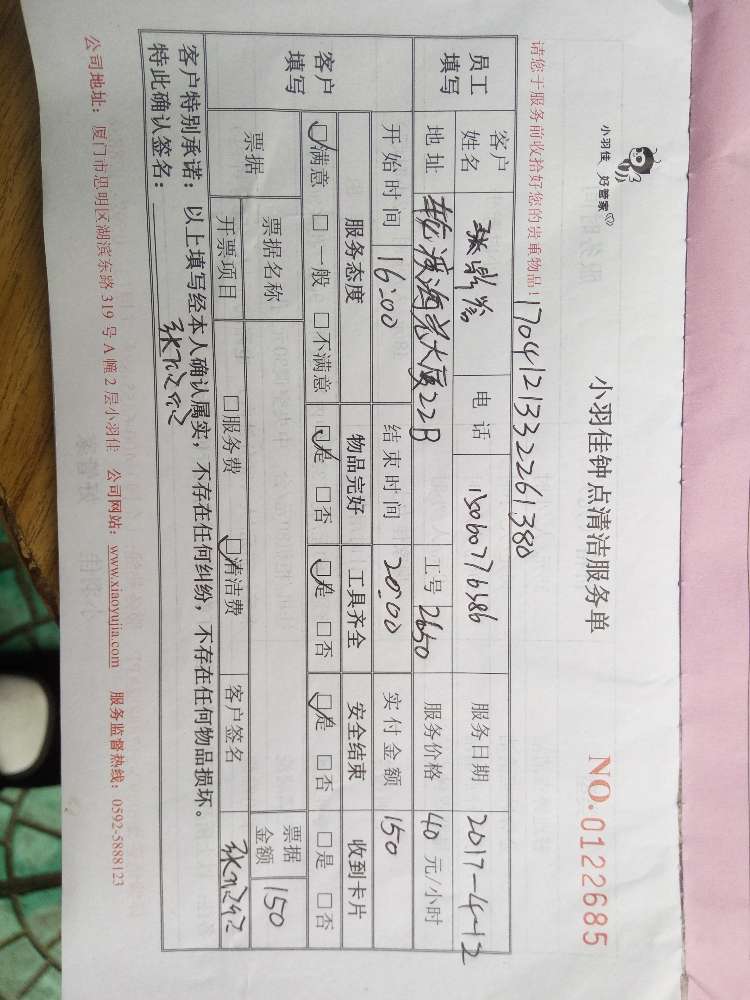 小羽佳 好管家
小羽佳钟点清洁服务单
NO.0122685
请您于服务前收拾好您的贵重物品!
1704121332261380
员工填写 客户姓名 电话 服务日期 2017-4-12
地址 22B 工号 2650 服务价格 40 元/小时
客户填写 开始时间 16:00 结束时间 20:00 实付金额 150
服务态度 物品完好 工具齐全 安全结束 收到卡片
☑满意 □一般 □不满意 ☑是 □否 ☑是 □否 ☑是 □否 □是 □否
票据 票据名称 票据金额 150
开票项目 □服务费 ☑清洁费 客户签名
客户特别承诺:以上填写经本人确认属实,不存在任何纠纷,不存在任何物品损坏。
特此确认签名:
公司地址:厦门市思明区湖滨东路 319 号 A 幢 2 层小羽佳 公司网站:www.xiaoyujia.com 服务监督热线:0592-5888123